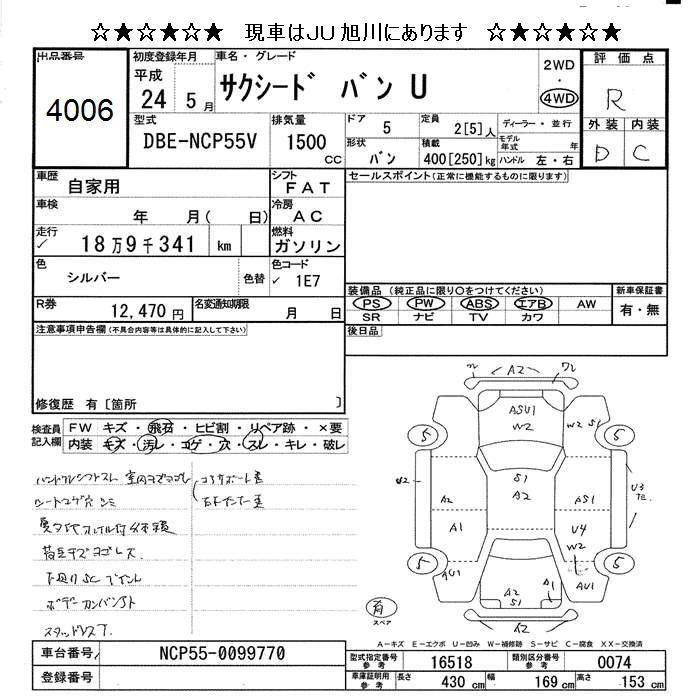 ☆★☆★☆★ 現車はJU旭川にあります ☆★☆★☆★
出品番号
4006
初度登録年月
平成
24 5月
車名・グレード
サクシード バン U
2WD
・
4WD
評価点
R
外装 内装
D C
型式
DBE-NCP55V
排気量
1500
CC
ドア 5
形状 バン
定員 2[5]人
積載 400[250]kg
ディーラー・並行
モデル年式 年
ハンドル 左・右
車歴 自家用
シフト FAT
車検 年 月( 日)
冷房 AC
走行 ✓ 18万9千341 km
燃料 ガソリン
色 シルバー 色替
色コード ✓ 1E7
R券 12,470円
名変通知期限 月 日
セールスポイント(正常に機能するものに限ります)
装備品 (純正品に限り○をつけてください)
PS PW ABS エアB AW
SR ナビ TV カワ
新車保証書
有・無
後日品
注意事項申告欄(不具合内容等は具体的に記入して下さい)
修復歴 有[箇所 ]
検査員記入欄
FW キズ・飛石・ヒビ割・リペア跡・×要
内装 キズ・汚レ・コゲ・穴・スレ・キレ・破レ
ハンドルシフトスレ 室内キズヨゴレ
コアサポート歪
シートコゲ穴シミ
荷室キズヨゴレス
下廻りSC ペイント
ボデーガンバンSト
スタッドレスT.
A2
ASU1
W2
W2 S1
5
5
U2
S1
A2
A2
AS1
U3
A1
U4
W2
5
5
AU1
A1
AU1
A2
S1
A2
有
スペア
A-キズ E-エクボ U-凹み W-補修跡 S-サビ C-腐食 XX-交換済
車台番号 NCP55-0099770
登録番号
型式指定番号 参考 16518
類別区分番号 参考 0074
車庫証明用 参考 長さ 430 cm 幅 169 cm 高さ 153 cm